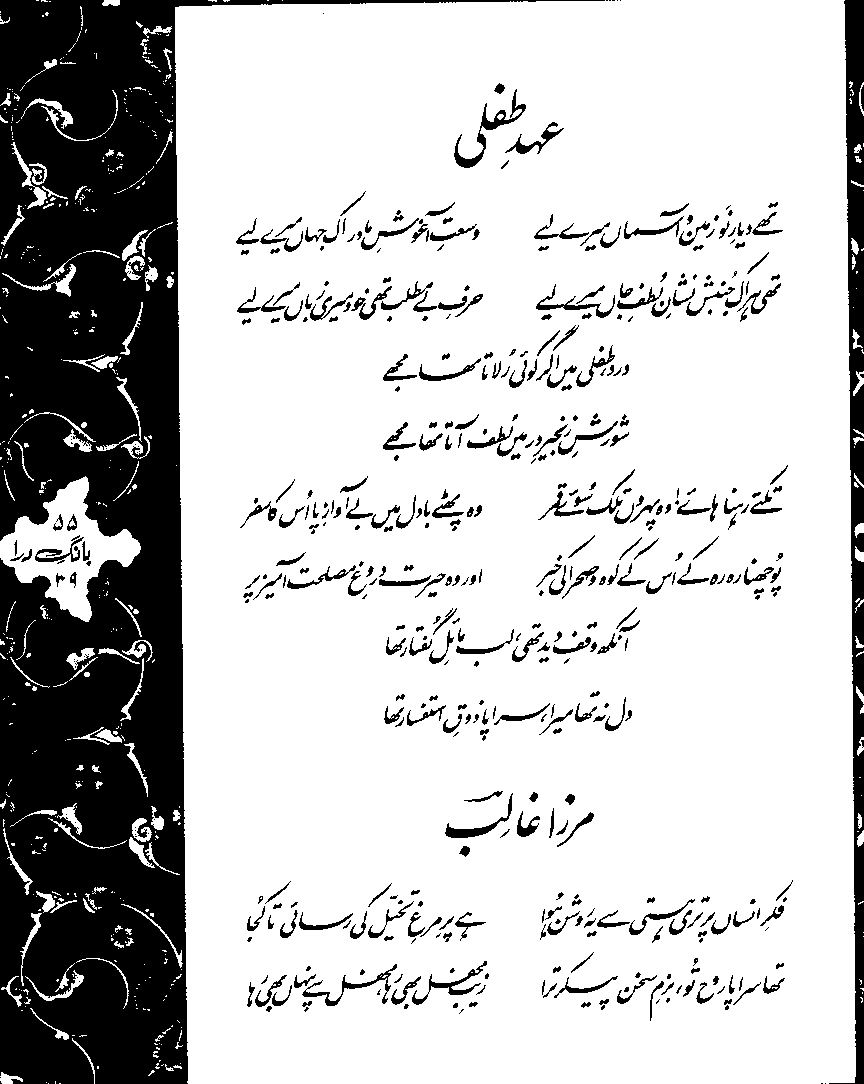 عہدِ طفلی
تھے دیارِ نَو زمین و آسماں میرے لیے وسعتِ آغوشِ مادر اک جہاں میرے لیے
تھی ہر اک جُنبش نشانِ لُطفِ جاں میرے لیے حرفِ بے مطلب تھی خود میری زباں میرے لیے
دردِ طفلی میں اگر کوئی رُلاتا تھا مجھے
شورشِ زنجیرِ در میں لُطف آتا تھا مجھے
تکتے رہنا ہائے! وہ پہروں تلک سُوئے قمر وہ پھٹے بادل میں بے آوازِ پا اُس کا سفر
پُوچھنا رہ رہ کے اُس کے کوہ و صحرا کی خبر اور وہ حیرت دروغِ مصلحت آمیز پر
آنکھ وقفِ دید تھی، لب مائلِ گُفتار تھا
دل نہ تھا میرا، سراپا ذوقِ استفسار تھا
مرزا غالبؔ
فکرِ انساں پر تری ہستی سے یہ روشن ہُوا ہے پرِ مرغِ تخیّل کی رسائی تا کُجا
تھا سراپا روح تُو، بزمِ سخن پیکر ترا زیبِ محفل بھی رہا، محفل سے پنہاں بھی رہا
۵۵
بانگِ درا
۳۹